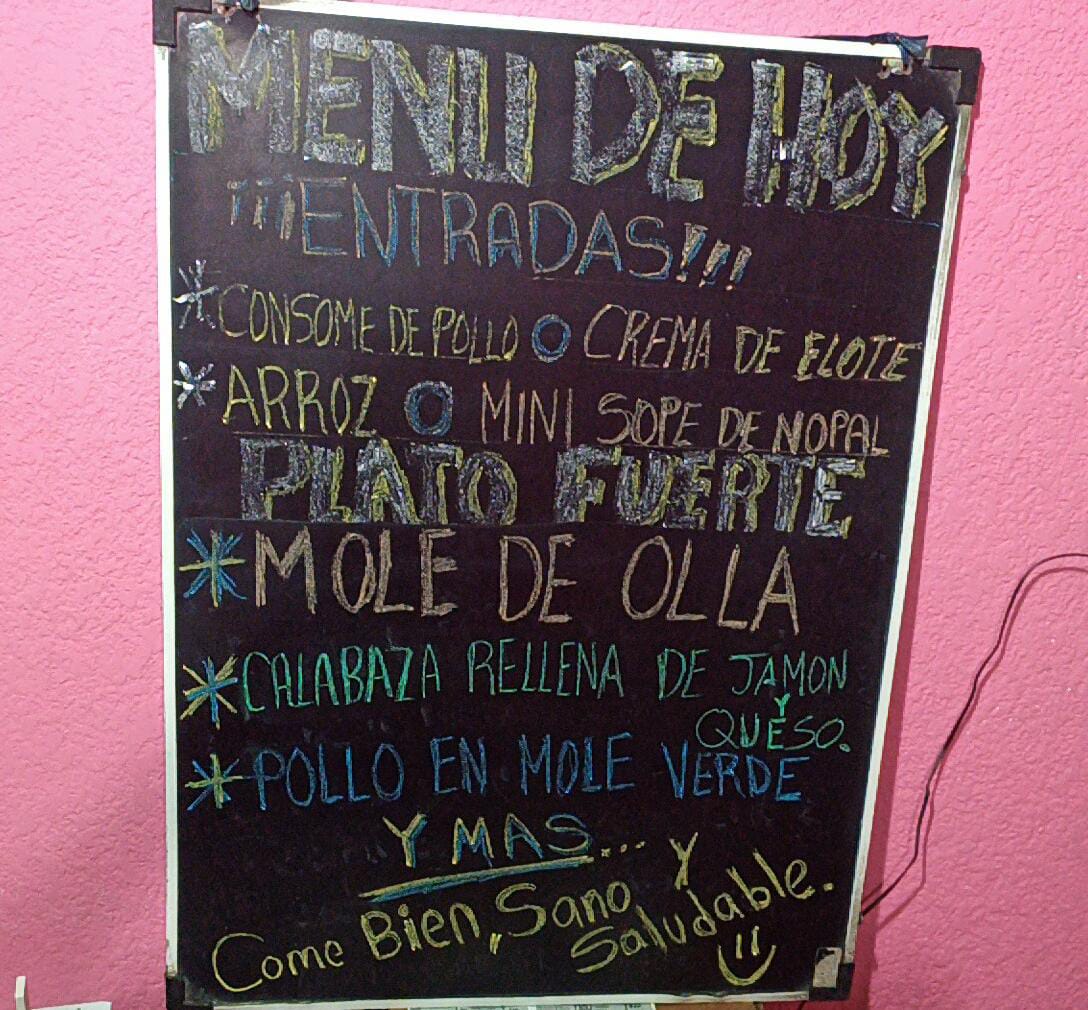 MENU DE HOY
¡¡¡ENTRADAS!!!
*CONSOME DE POLLO O CREMA DE ELOTE
*ARROZ O MINI SOPE DE NOPAL
PLATO FUERTE
*MOLE DE OLLA
*CALABAZA RELLENA DE JAMON
Y
QUESO.
*POLLO EN MOLE VERDE
Y MAS...
Come Bien, Sano y
Saludable.